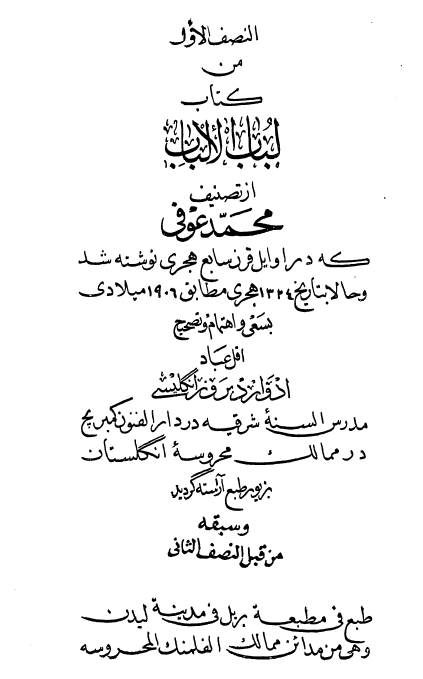 النصف الأول
من
كتاب
لباب الألباب
از تصنیف
محمد عوفی
که در اوایل قرن سابع هجری نوشته شد
و حالا بتاریخ ۱۳۲۴ هجری مطابق ۱۹۰۶ میلادی
بسعی و اهتمام و تصحیح
اقل عباد
ادوارد برون انگلیسی
مدرس السنهٔ شرقیه در دار الفنون کمبریج
در ممالك محروسهٔ انگلستان
بزیور طبع آراسته گردید
وسبقه
من قبل النصف الثانی
طبع فی مطبعة بریل فی مدینة لیدن
وهی من مدائن ممالك الفلمنك المحروسه